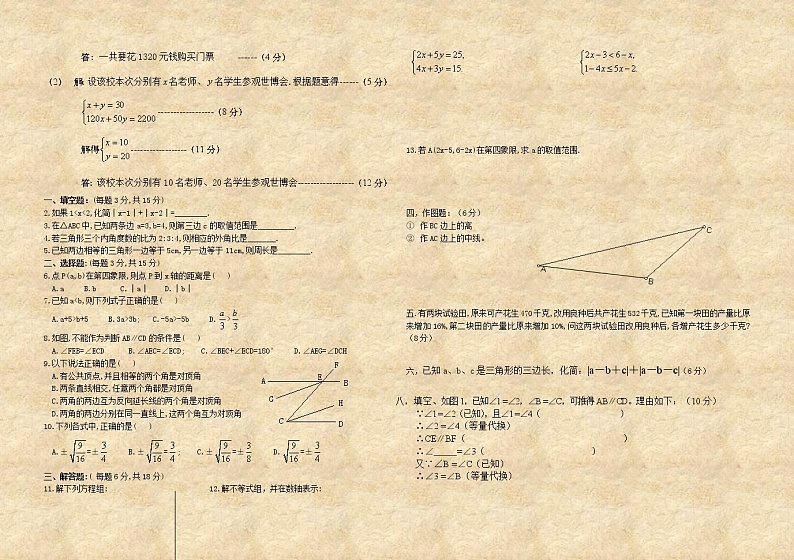 答: 一共要花1320元钱购买门票 ------（4分）
（2） 解:设该校本次分别有x名老师、y名学生参观世博会,根据题意得------（5分）
{x+y=30
120x+50y=2200 ------------------（8分）
解得{x=10
y=20 ------------------（11分）
答: 该校本次分别有10名老师、20名学生参观世博会------------------（12分）
一、填空题:(每题3分,共15分)
2.如果1<x<2,化简│x-1│+│x-2│=________.
3.在△ABC中,已知两条边a=3,b=4,则第三边c的取值范围是_________.
4.若三角形三个内角度数的比为2:3:4,则相应的外角比是_______.
5.已知两边相等的三角形一边等于5cm,另一边等于11cm,则周长是________.
二、选择题:(每题3分,共15分)
6.点P(a,b)在第四象限,则点P到x轴的距离是( )
A.a B.b C.│a│ D.│b│
7.已知a<b,则下列式子正确的是( )
A.a+5>b+5 B.3a>3b; C.-5a>-5b D.a/3>b/3
8.如图,不能作为判断AB∥CD的条件是( )
A.∠FEB=∠ECD B.∠AEC=∠ECD; C.∠BEC+∠ECD=180° D.∠AEG=∠DCH
9.以下说法正确的是( )
A.有公共顶点,并且相等的两个角是对顶角
B.两条直线相交,任意两个角都是对顶角
C.两角的两边互为反向延长线的两个角是对顶角
D.两角的两边分别在同一直线上,这两个角互为对顶角
F
A E B
G
H
C D
10.下列各式中,正确的是( )
A.±√(9/16)=±3/4 B.±√(9/16)=3/4; C.±√(9/16)=±3/8 D.√(9/16)=±3/4
三、解答题:( 每题6分,共18分)
11.解下列方程组: 12.解不等式组，并在数轴表示:
{2x+5y=25,
4x+3y=15.
{2x-3<6-x,
1-4x≤5x-2.
13.若A(2x-5,6-2x)在第四象限,求a的取值范围.
四，作图题：（6分）
① 作BC边上的高
② 作AC边上的中线。
C
A
B
五.有两块试验田,原来可产花生470千克,改用良种后共产花生532千克,已知第一块田的产量比原
来增加16%,第二块田的产量比原来增加10%,问这两块试验田改用良种后,各增产花生多少千克?
（8分）
六，已知a、b、c是三角形的三边长，化简：|a－b＋c|＋|a－b－c|（6分）
八，填空、如图1，已知∠1 =∠2，∠B =∠C，可推得AB∥CD。理由如下：（10分）
∵∠1 =∠2（已知），且∠1 =∠4（ ）
∴∠2 =∠4（等量代换）
∴CE∥BF（ ）
∴∠_____=∠3（ ）
又∵∠B =∠C（已知）
∴∠3 =∠B（等量代换）